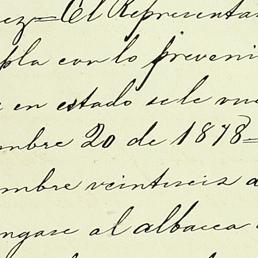 ez = El Representa
pla con lo preveni
en estado se le vue
mbre 20 de 1878 =
mbre veintiseis d
ngase al albacea